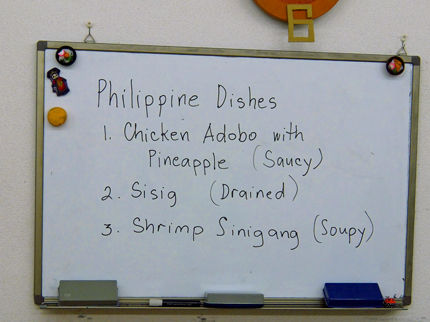 Philippine Dishes
1. Chicken Adobo with
Pineapple (Saucy)
2. Sisig (Drained)
3. Shrimp Sinigang (Soupy)